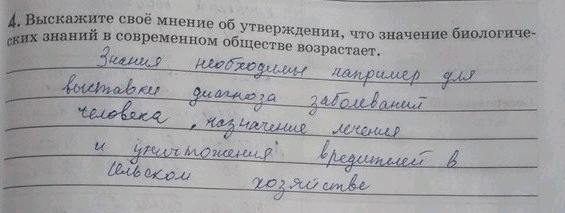 4. Выскажите своё мнение об утверждении, что значение биологиче-
ских знаний в современном обществе возрастает.
Знания необходимы например для
выставки диагноза заболеваний
человека, назначение лечения
и уничтожения вредителей в
сельском хозяйстве